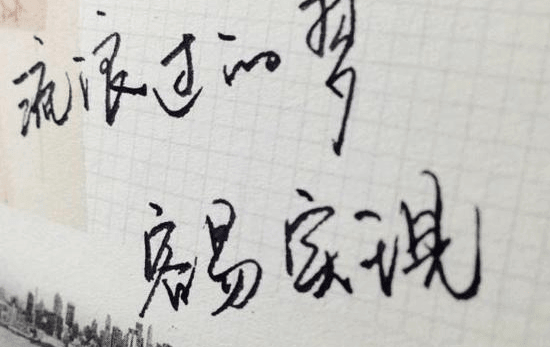 流浪过的梦
容易实现